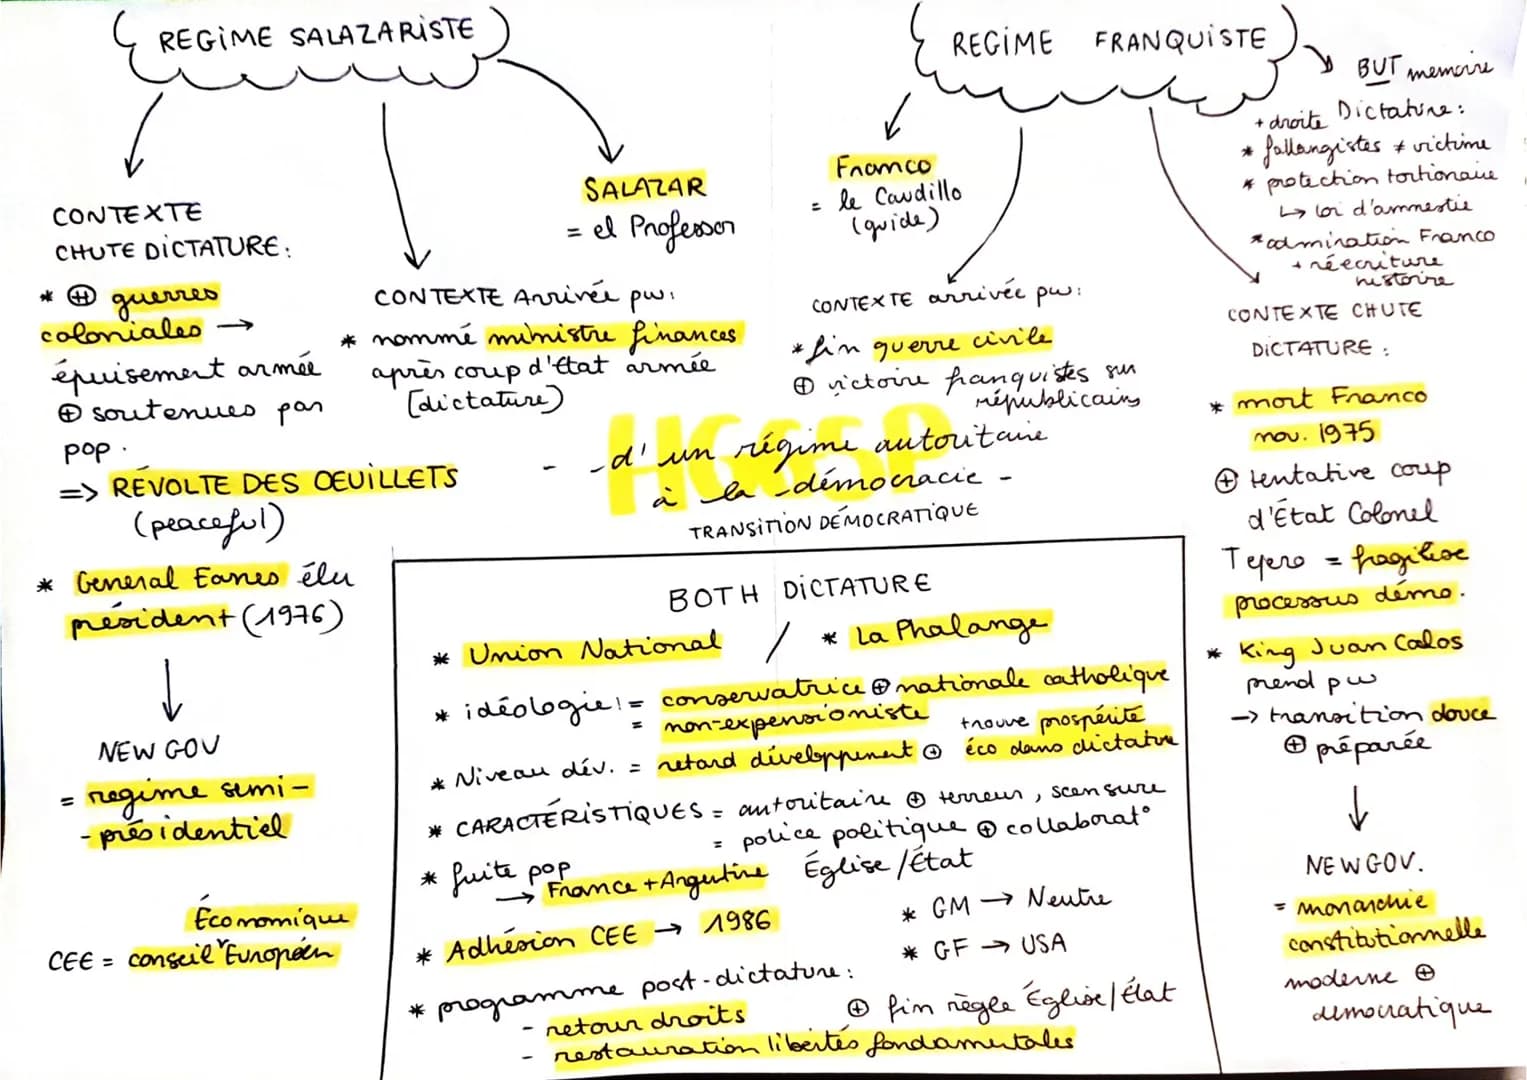 REGIME SALAZARISTE
CONTEXTE
CHUTE DICTATURE:
* ⊕ guerres
coloniales →
épuisement armée
⊕ soutenues par
pop.
=> RÉVOLTE DES OEUILLETS
(peaceful)
* General Eanes élu
président (1976)
NEW GOV
= regime semi-
-présidentiel
Économique
CEE = conseil Européen
CONTEXTE Arrivée pw:
* nommé ministre finances
après coup d'État armée
(dictature)
SALAZAR
= el Professor
REGIME FRANQUISTE
Franco
= le Caudillo
(guide)
CONTEXTE arrivée pw:
* fin guerre civile
⊕ victoire franquistes sur
républicains
BUT memoire
+ droite Dictature:
* fallangistes ≠ victime
* protection tortionaire
↳ loi d'amnestie
* admiration Franco
+ réecriture
histoire
CONTEXTE CHUTE
DICTATURE:
* mort Franco
nov. 1975
⊕ tentative coup
d'État Colonel
Tejero = fragilise
processus démo.
* King Juan Calos
prend pw
→ transition douce
⊕ préparée
NEW GOV.
= monarchie
constitutionnelle
moderne ⊕
democratique
HGGSP
- - d'un régime autoritaire
à la - démocracie -
TRANSITION DÉMOCRATIQUE
BOTH DICTATURE
* Union National / * La Phalange
* idéologie! = conservatrice ⊕ nationale catholique
= non-expensioniste
* Niveau dév. = retard développement ⊕ trouve prospérité
éco dans dictature
* CARACTÉRISTIQUES = autoritaire ⊕ terreur, scensure
= police politique ⊕ collaborat°
Église/État
* fuite pop
→ France + Argentine
* GM → Neutre
* Adhésion CEE → 1986
* GF → USA
* programme post-dictature:
- retour droits ⊕ fin règle Église/État
- restauration libertés fondamentales